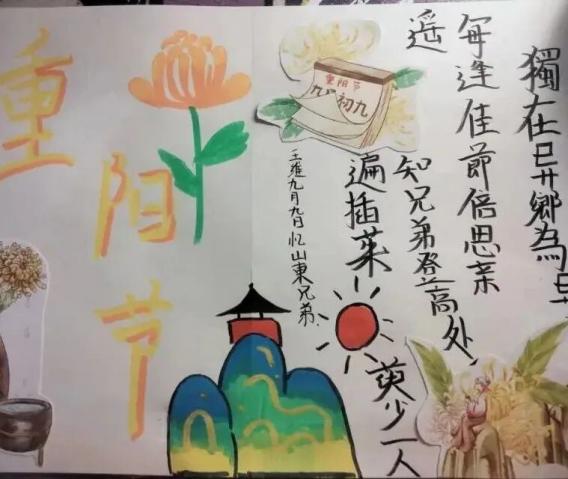 重阳节
重阳节
九月初九
獨在异鄉為
每逢佳節倍思亲
遥
知兄弟登高处
遍插茱
萸少一人
王维九月九日忆山東兄弟